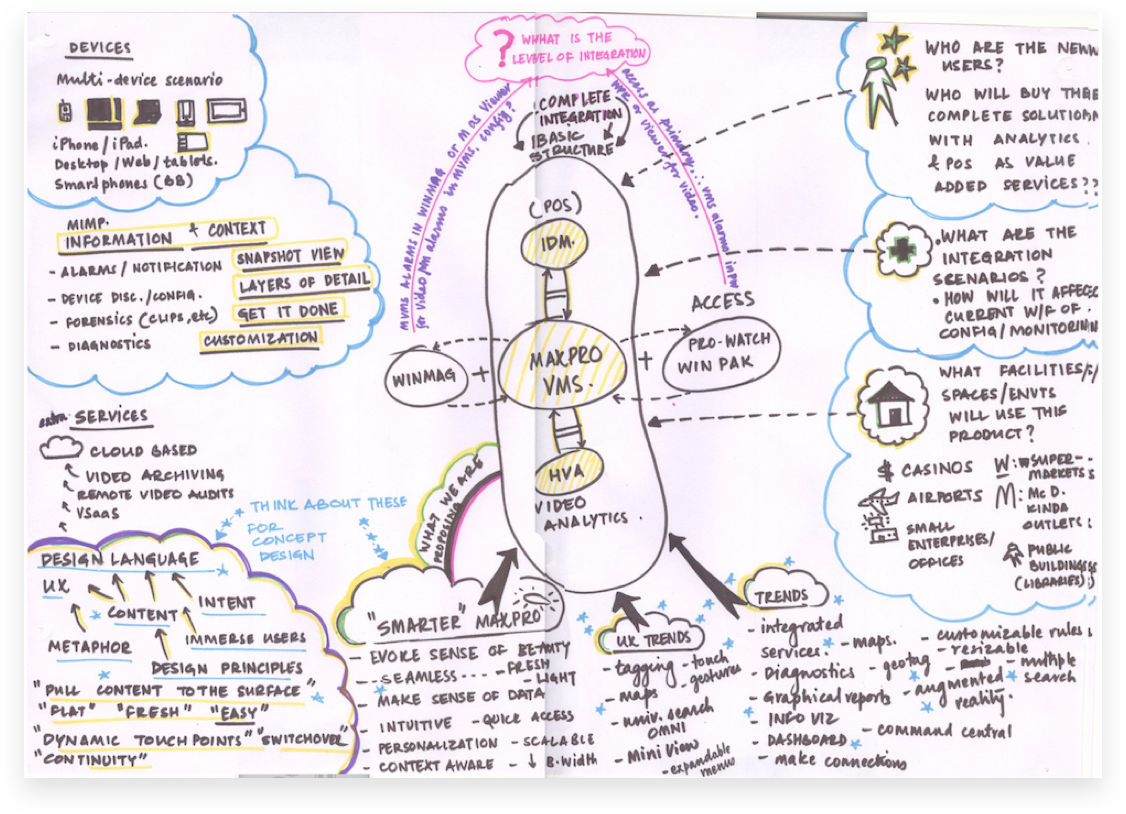 DEVICES
Multi-device scenario
iPhone / iPad.
Desktop / Web / tablets.
Smartphones (BB)
MIMP.
INFORMATION + CONTEXT
SNAPSHOT VIEW
LAYERS OF DETAIL
GET IT DONE
CUSTOMIZATION
- ALARMS / NOTIFICATION
- DEVICE DISC. / CONFIG.
- FORENSICS (CLIPS, etc)
- DIAGNOSTICS
extra SERVICES
CLOUD BASED
VIDEO ARCHIVING
REMOTE VIDEO AUDITS
VSaaS
THINK ABOUT THESE
FOR
CONCEPT
DESIGN
DESIGN LANGUAGE
UX
CONTENT
INTENT
METAPHOR
IMMERSE USERS
DESIGN PRINCIPLES
"PULL CONTENT TO THE SURFACE"
"FLAT" "FRESH" "EASY"
"DYNAMIC TOUCH POINTS" "SWITCHOVER"
"CONTINUITY"
? WHHAT IS THE
LEVEL OF INTEGRATION
MVMS ALARMS IN WINMAG OR M AS VIEWER
for video
alarms in MVMS. config?
access as primary
vms alarms in PW
or viewer for video.
COMPLETE
INTEGRATION
BASIC
STRUCTURE
(POS)
IDM.
MAXPRO
VMS.
WINMAG
+
+
ACCESS
PRO-WATCH
WIN PAK
HVA
VIDEO
ANALYTICS.
WHAT WE ARE
PROPOSING
"SMARTER" MAXPRO
- EVOKE SENSE OF BEAUTY
- SEAMLESS - FRESH
- LIGHT
- MAKE SENSE OF DATA
INTUITIVE - QUICK ACCESS
- PERSONALIZATION - SCALABLE
- CONTEXT AWARE - ↓ B.Width
UX TRENDS
- tagging - touch
gestures
- maps
- univ. search
OMNI
- Mini View
- expandable
menus
TRENDS
- integrated
services.
- maps.
- Diagnostics
- geotag
- Graphical reports
- INFO VIZ
- DASHBOARD
- make connections
- customizable rules
- resizable
- multiple
search
- augmented
reality.
- command central
WHO ARE THE NEW
USERS?
WHO WILL BUY THE
COMPLETE SOLUTION
WITH ANALYTICS
& POS AS VALUE
ADDED SERVICES??
• WHAT ARE THE
INTEGRATION
SCENARIOS?
• HOW WILL IT AFFEC
CURRENT W/F OF
CONFIG / MONITORIN
WHAT FACILITIES/
SPACES/ENVTS
WILL USE THIS
PRODUCT?
$ CASINOS
AIRPORTS
SMALL
ENTERPRISES/
OFFICES
W: SUPER-
MARKETS
M: Mc D.
KINDA
OUTLETS
PUBLIC
BUILDINGS
(LIBRARIES)